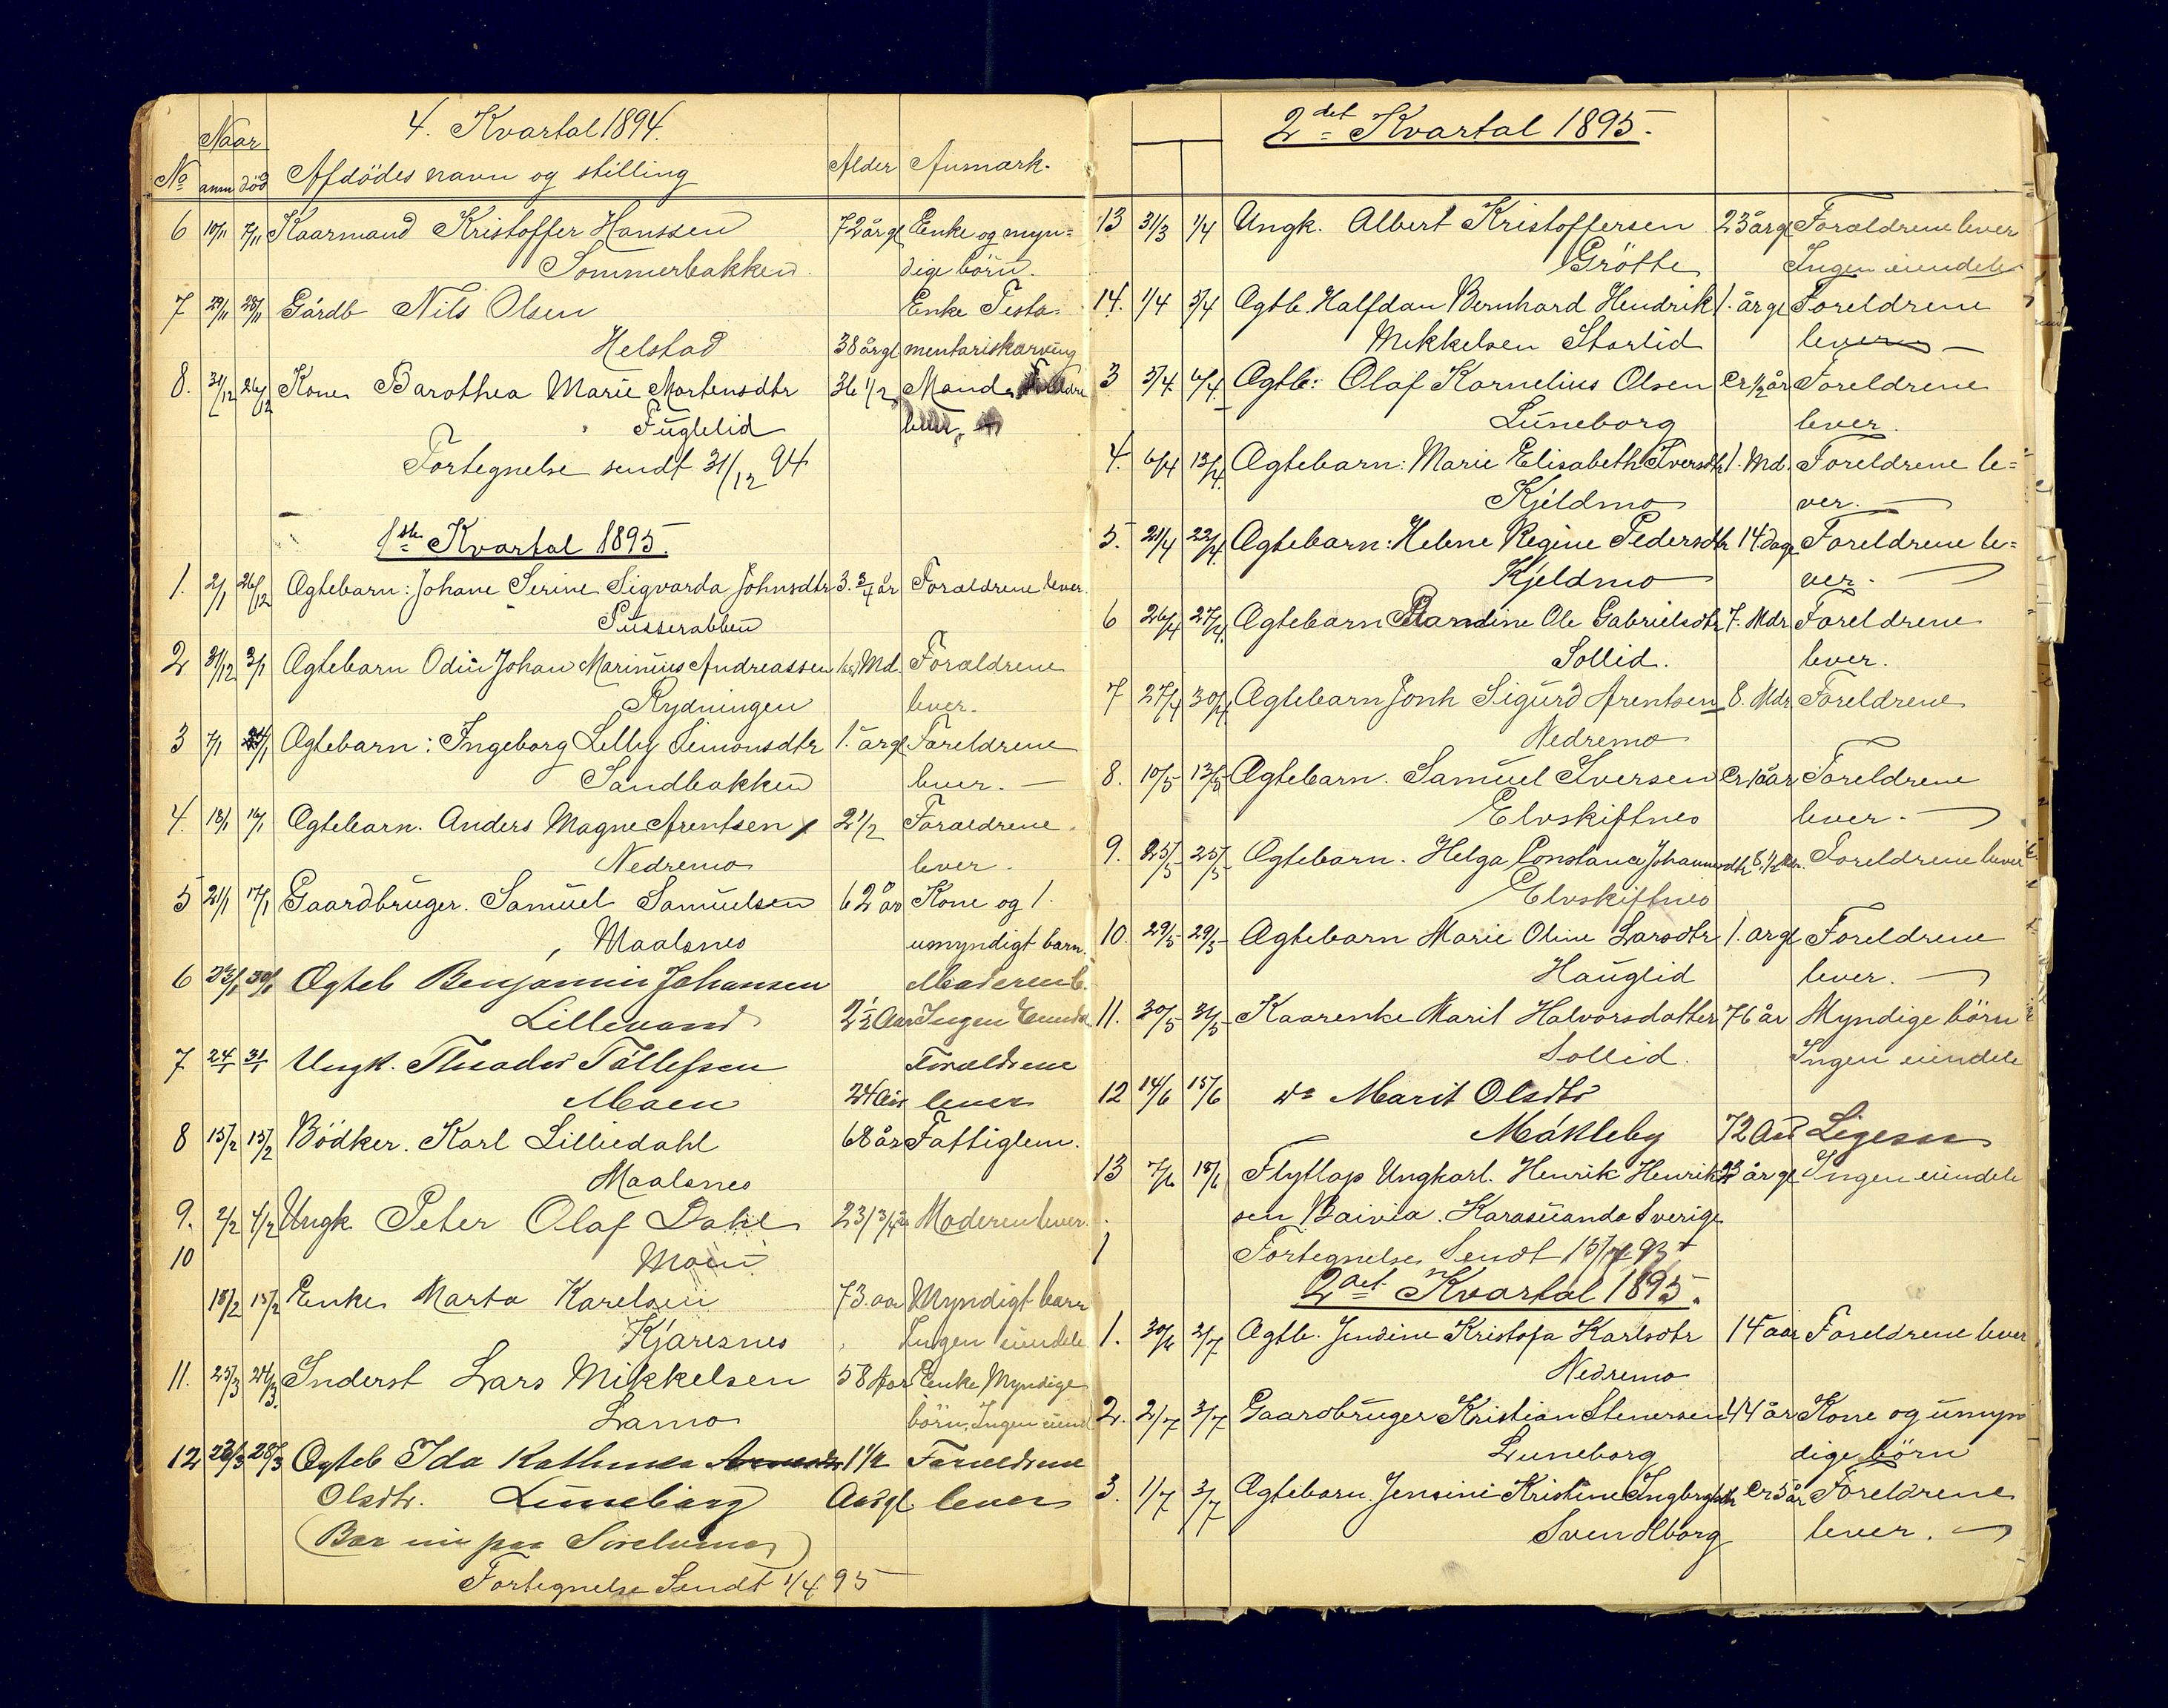 4. Kvartal 1894.
Naar
No anm død Afdödes navn og stilling Alder Anmærk.
6 10/11 7/11 Kaarmand Kristoffer Hanssen 72 årgl Enke og myn=
Sommerbakken. dige börn.
7 29/11 28/11 Gårdb Nils Olsen Enke Testa=
Helstad 38 årgl mentariskarving
8. 31/12 26/12 Kone Barothea Marie Mortensdtr 36 1/2 Mand
Fuglelid lever
Fortegnelse sendt 31/12 94
1ste Kvartal 1895.
1. 2/1 26/12 Ægtebarn: Johane Serine Sigvarda Johnsdtr 3. 3/4 år Forældrene lever.
Pusserabben
2 31/12 3/1 Ægtebarn Odin Johan Marinius Andreassen Md. Forældrene
Rydningen lever.
3 7/1 Ægtebarn: Ingeborg Lelly Simonsdtr 1. årgl Foreldrene
Sandbakken lever. —
4. 18/1 16/1 Ægtebarn. Anders Magne Arentsen 2 1/2 Foraldrene
Nedremo lever
5 21/1 17/1 Gaardbruger. Samuel Samuelsen 62 år Kone og 1.
Maalsnes umyndigt barn.
6 23/1 30/1 Ægteb Benjamin Johansen Moderen l.
Lillevand 2 1/2 Aar Ingen Eiendel
7 24/1 31/1 Ungk. Theodor Tollefsen Forældrene
Moen 24 Aar lever
8 15/2 15/2 Bödker. Karl Lilliedahl 68 år Fattiglem.
Maalsnes
9. 2/2 4/2 Ungk Peter Olaf Dahl 23 3/4 Moderen lever.
10 Moen
18/2 15/2 Enke Marta Karelsen 73. aar Myndigt barn
Kjæresnes Ingen eiendele
11. 25/3 24/3. Inderst Lars Mikkelsen 58 Aar Enke Myndige
Lamo börn, Ingen eiend
12 23/3 28/3 Ægteb Ida Kathinka 1 1/2 Forældrene
Olsdtr. Luneborg Aargl lever
(Bor nu paa
Fortegnelse Sendt 1/4 95
2det Kvartal 1895.
13 31/3 1/4 Ungk. Albert Kristoffersen 23 årgl Forældrene lever
Grötte Ingen eiendele
14. 1/4 3/4 Ægtb. Halfdan Bernhard Hendrik 1. årgl Foreldrene
Mikkelsen Storlid lever —
3 5/4 6/4 Ægtb: Olaf Kornelius Olsen Cr 1/2 år Foreldrene
Luneborg lever.
4. 6/4 13/4 Ægtebarn: Marie Elisabeth Iversdtr 1. Md. Foreldrene le=
Kjeldmo ver. —
5. 21/4 22/4 Ægtebarn: Helene Regine Pedersdtr 14. dage Foreldrene le=
Kjeldmo ver. —
6 26/4 27/4 Ægtebarn Ole Gabrielsdtr 7. Mdr Foreldrene
Sollid. lever.
7 27/4 30/4 Ægtebarn Jonh Sigurd Arentsen 8. Mdr Foreldrene
Nedremo
8. 10/5 13/5 Ægtebarn. Samuel Iversen Cr 10 år Foreldrene
Elvskiftnes lever. —
9. 25/5 25/5 Ægtebarn. Helga Constance Johannesdtr 8. 1/2 Mdr. Foreldrene lever
Elvskiftnes
10. 29/5 29/5 Ægtebarn Marie Oline Larsdtr 1. årgl Foreldrene
Hauglid lever. —
11. 30/5 31/5 Kaarenke Marit Halvorsdatter 76 år Myndige börn
Sollid. Ingen eiendele
12 14/6 15/6 do Marit Olsdtr
Mákleby 72 Aar Ligesaa
13 7/6 18/6 Flytlap Ungkarl. Henrik Henrik 23 årgl Ingen eiendele
sen Baivia. Karasuando Sverige
1 Fortegnelse Sendt 15/7. 95
2det Kvartal 1895.
1. 30/6 2/7 Ægtb. Jensine Kristofa Karlsdtr 14 aar Foreldrene lever
Nedremo
2. 2/7 3/7 Gaardbruger Kristian Stenersen 44 år Kone og umyn
Luneborg dige börn
3. 1/7 3/7 Ægtebarn. Jensine Kristine Ingbrgtsdtr Cr 5 år Foreldrene
Svendborg lever. —